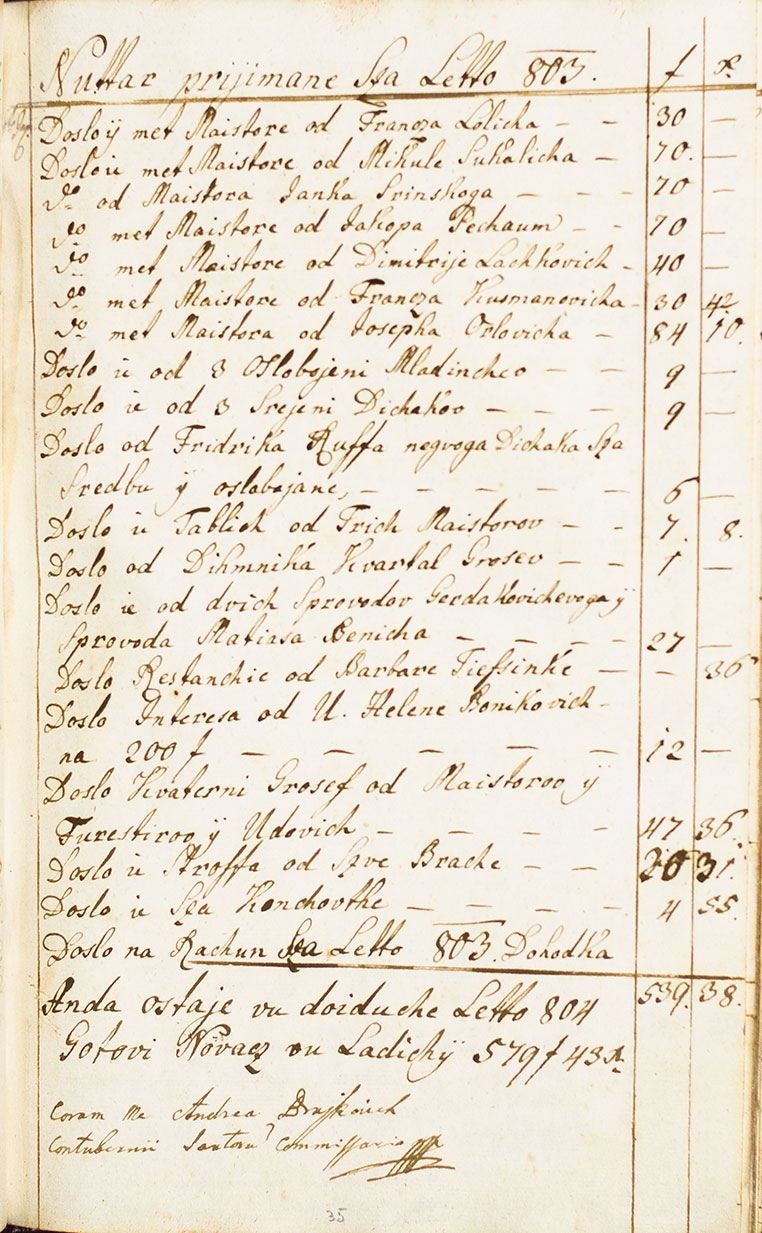 Nuttar prijimane Sza Letto 803. f x
Dosloÿ met Maistore od Francza Lolicha — — 30 —
Doslo ie met Maistore od Mikule Sukalicha — 70. —
do od Maistora Janka Srinskoga — — — 70 —
do met Maistore od Jakopa Pechaum — — 70 —
do met Maistore od Dimitrije Lachkovich — 40 —
do met Maistore od Francza Kusmanovicha — 30 42
do met Maistora od Josepha Orlovicha — 84 10.
Doslo ie od 3 Oslobojeni Mladincheo — — 9 —
Doslo ie od 3 Srejeni Dichakov — — — 9 —
Doslo od Fridrika Ruffa negvoga Dichaka Sza
Sredbu ÿ oslobojane, — — — — — 6 —
Doslo ie Tablich od Trich Maistorov — — 7. 8.
Doslo od Dihmnika Kvartal Grosev — — 1 —
Doslo ie od dvich Sprovodov Gerdakovichevoga ÿ
Sprovoda Matiasa Benicha — — — — 27 —
Doslo Restanchie od Barbare Tiefsinke — — 36
Doslo Interesa od U. Helene Bonikovich —
na 200 f — — — — — 12 —
Doslo Kvaterni Grosef od Maistorov ÿ
Furestirov ÿ Udovich — — — — 47 36.
Doslo ie Stroffa od Szve Brache — — 20 31.
Doslo ie Sza Konchovthe — — — — 4 55.
Doslo na Rachun Sza Letto 803. Dohodka
539. 38.
Anda ostaje vu doiduche Letto 804
Gotovi Novacz vu Ladichÿ 579 f 43 x
Coram me Andrea Drajkovich
Contubernii Sartorum Commissario
35